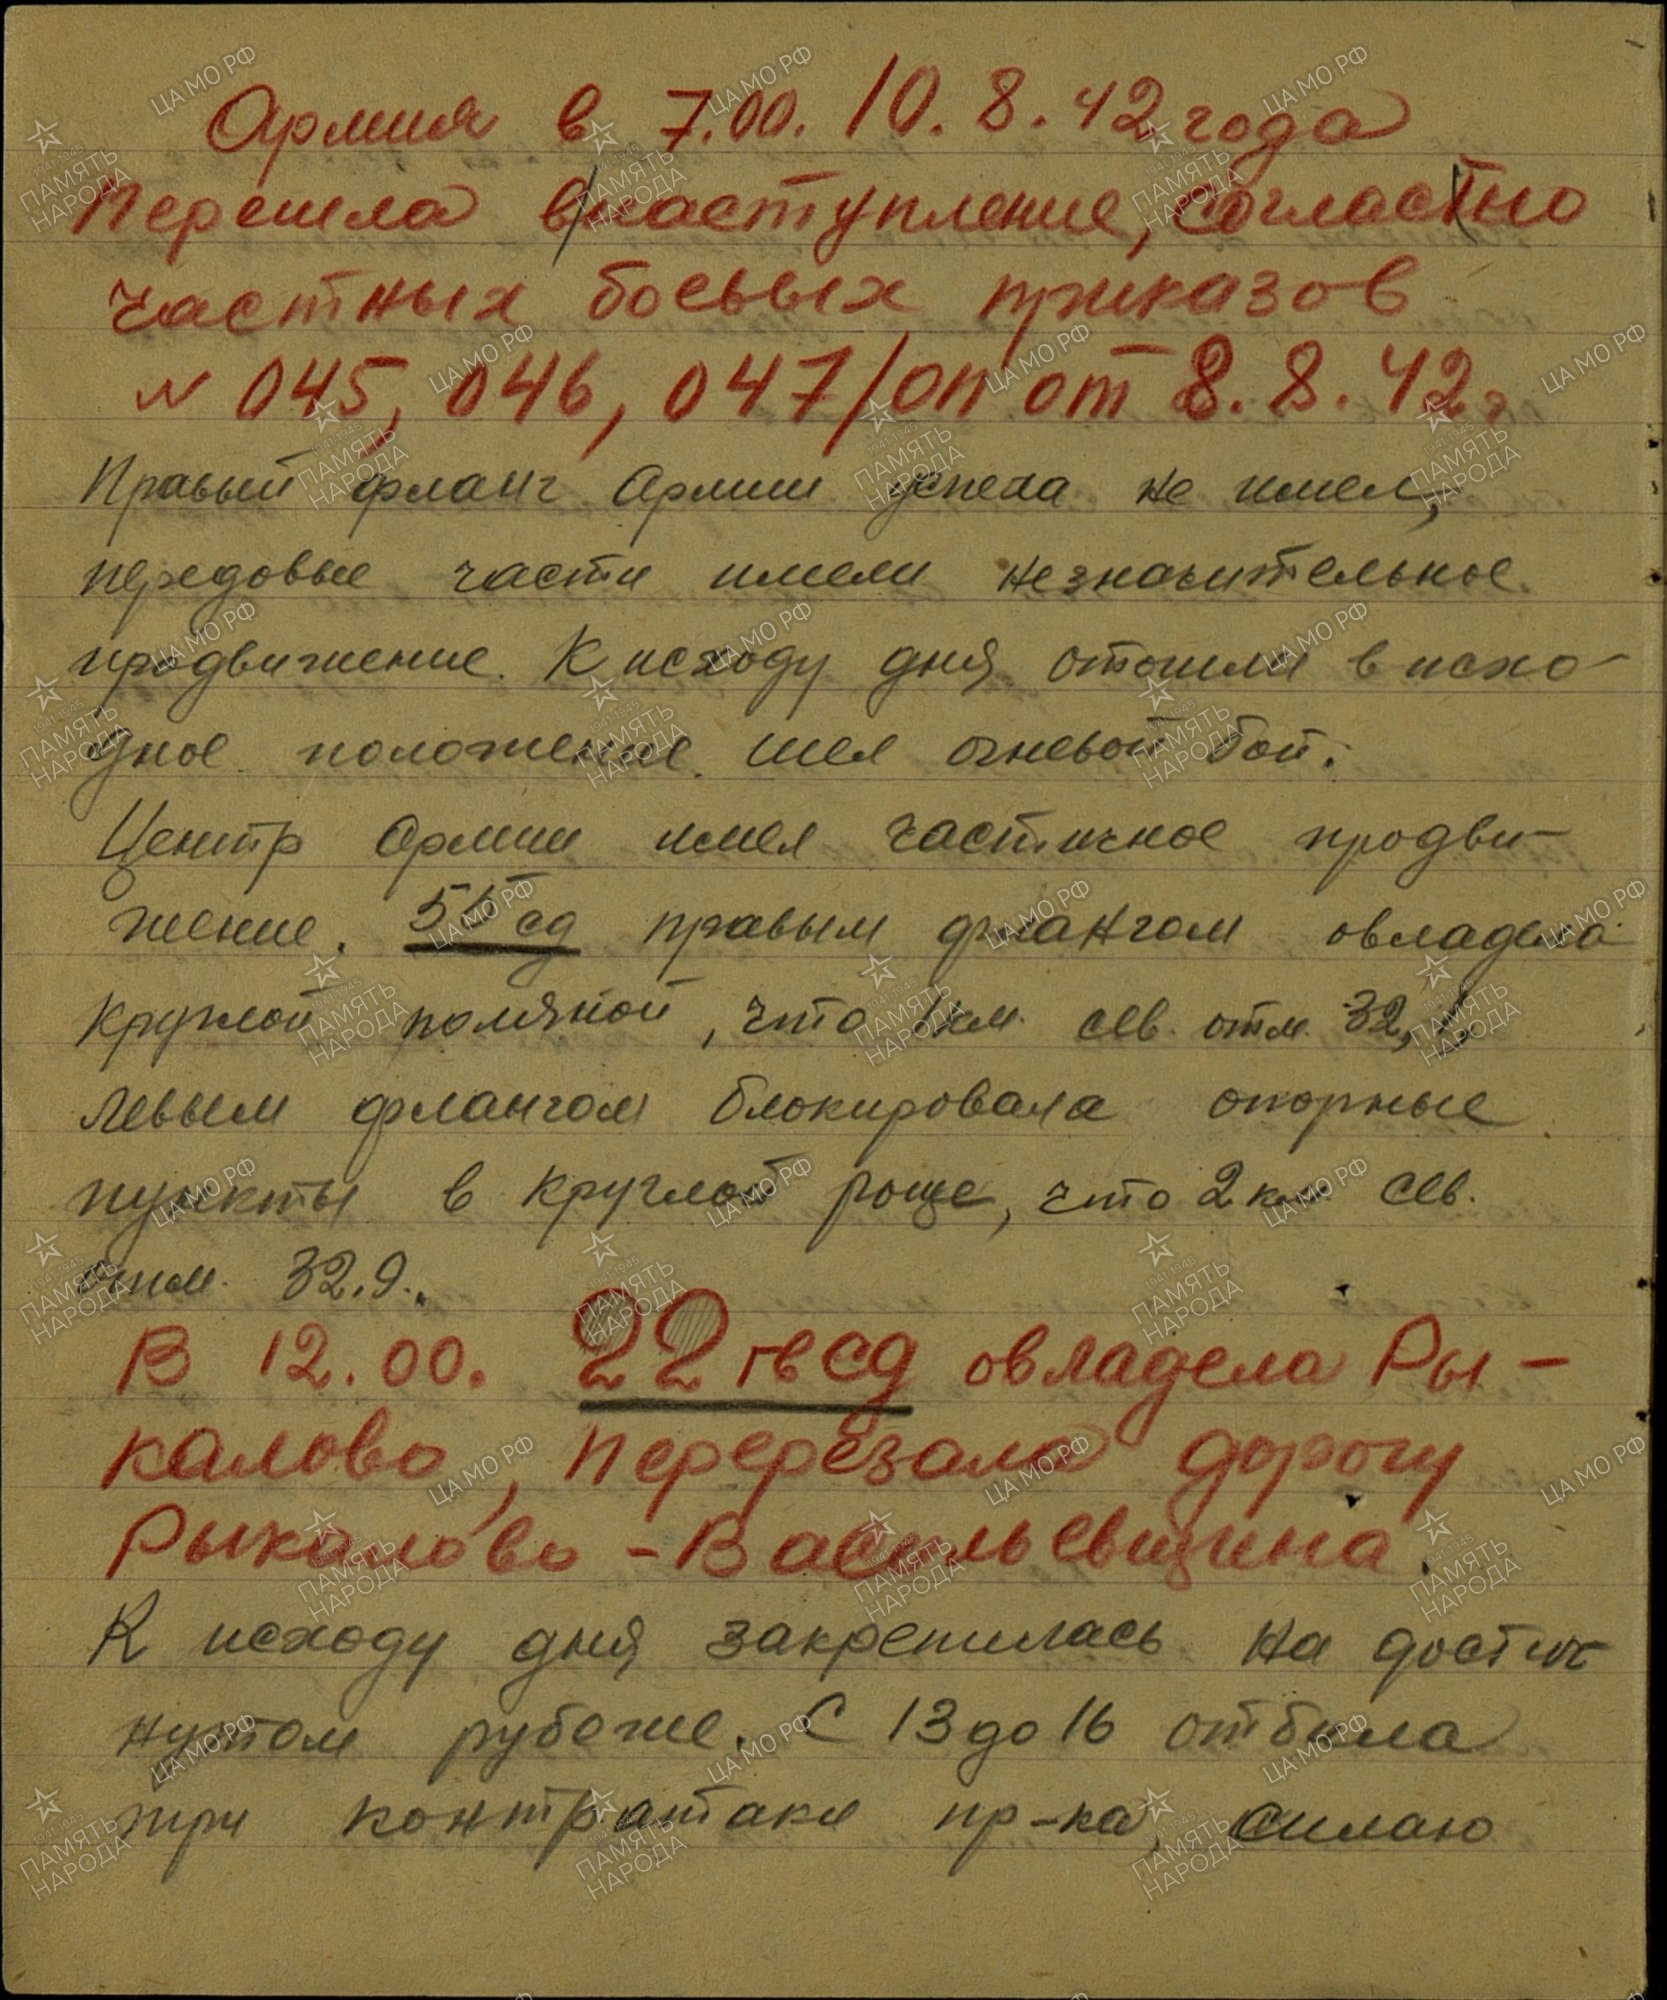 Армия в 7.00. 10.8.42 года
перешла в наступление, согластно
частных боевых приказов
№ 045, 046, 047/оп от 8.8.42г
Правый фланг Армии успеха не имел,
передовые части имели незначительное
продвижение. К исходу дня отошли в исхо-
дное положение. Шел огневой бой.
Центр Армии имел частичное продви-
жение. 55 сд правым флангом овладела
круглой поляной, что 1 км. сев. отм. 32,1,
левым флангом блокировала опорные
пункты в круглой роще, что 2 км сев.
отм. 32.9..
В 12.00. 22 гв сд овладела Ры-
калово, перерезала дорогу
Рыкалово - Васильевщина.
К исходу дня закрепилась на достиг
нутом рубеже. С 13 до 16 отбила
три контратаки пр-ка, силаю
ЦАМО РФ
1941-1945
ПАМЯТЬ
НАРОДА